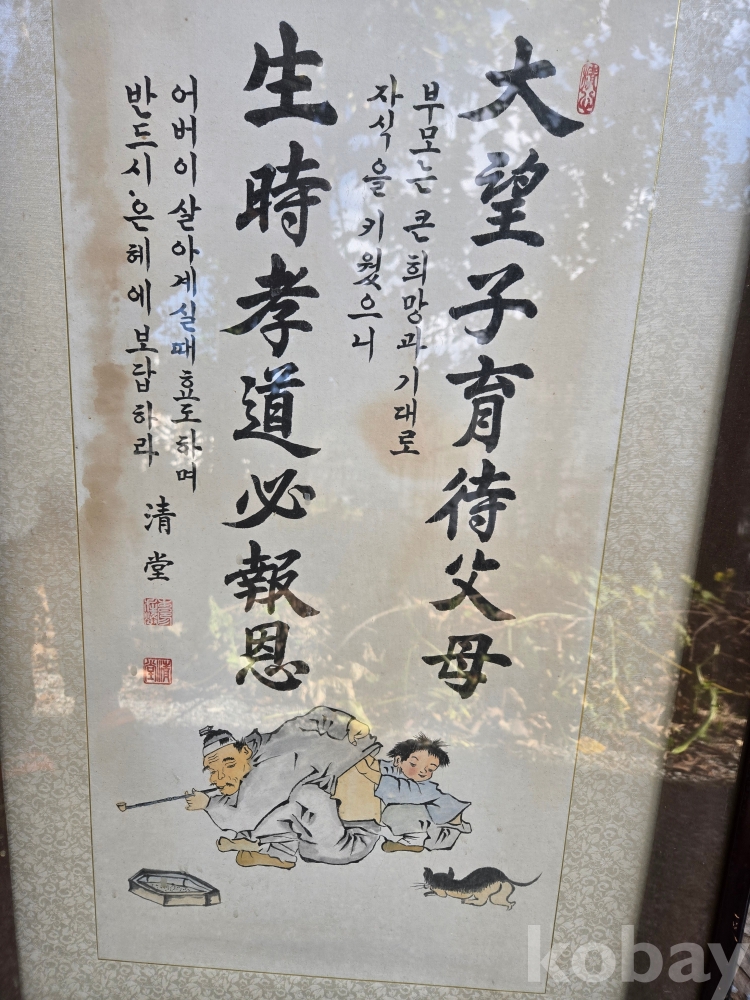 大望子育待父母
부모는 큰 희망과 기대로
자식을 키웠으니
生時孝道必報恩
어버이 살아계실때 효도하며
반드시 은혜에 보답하라
清堂
清堂
kobay